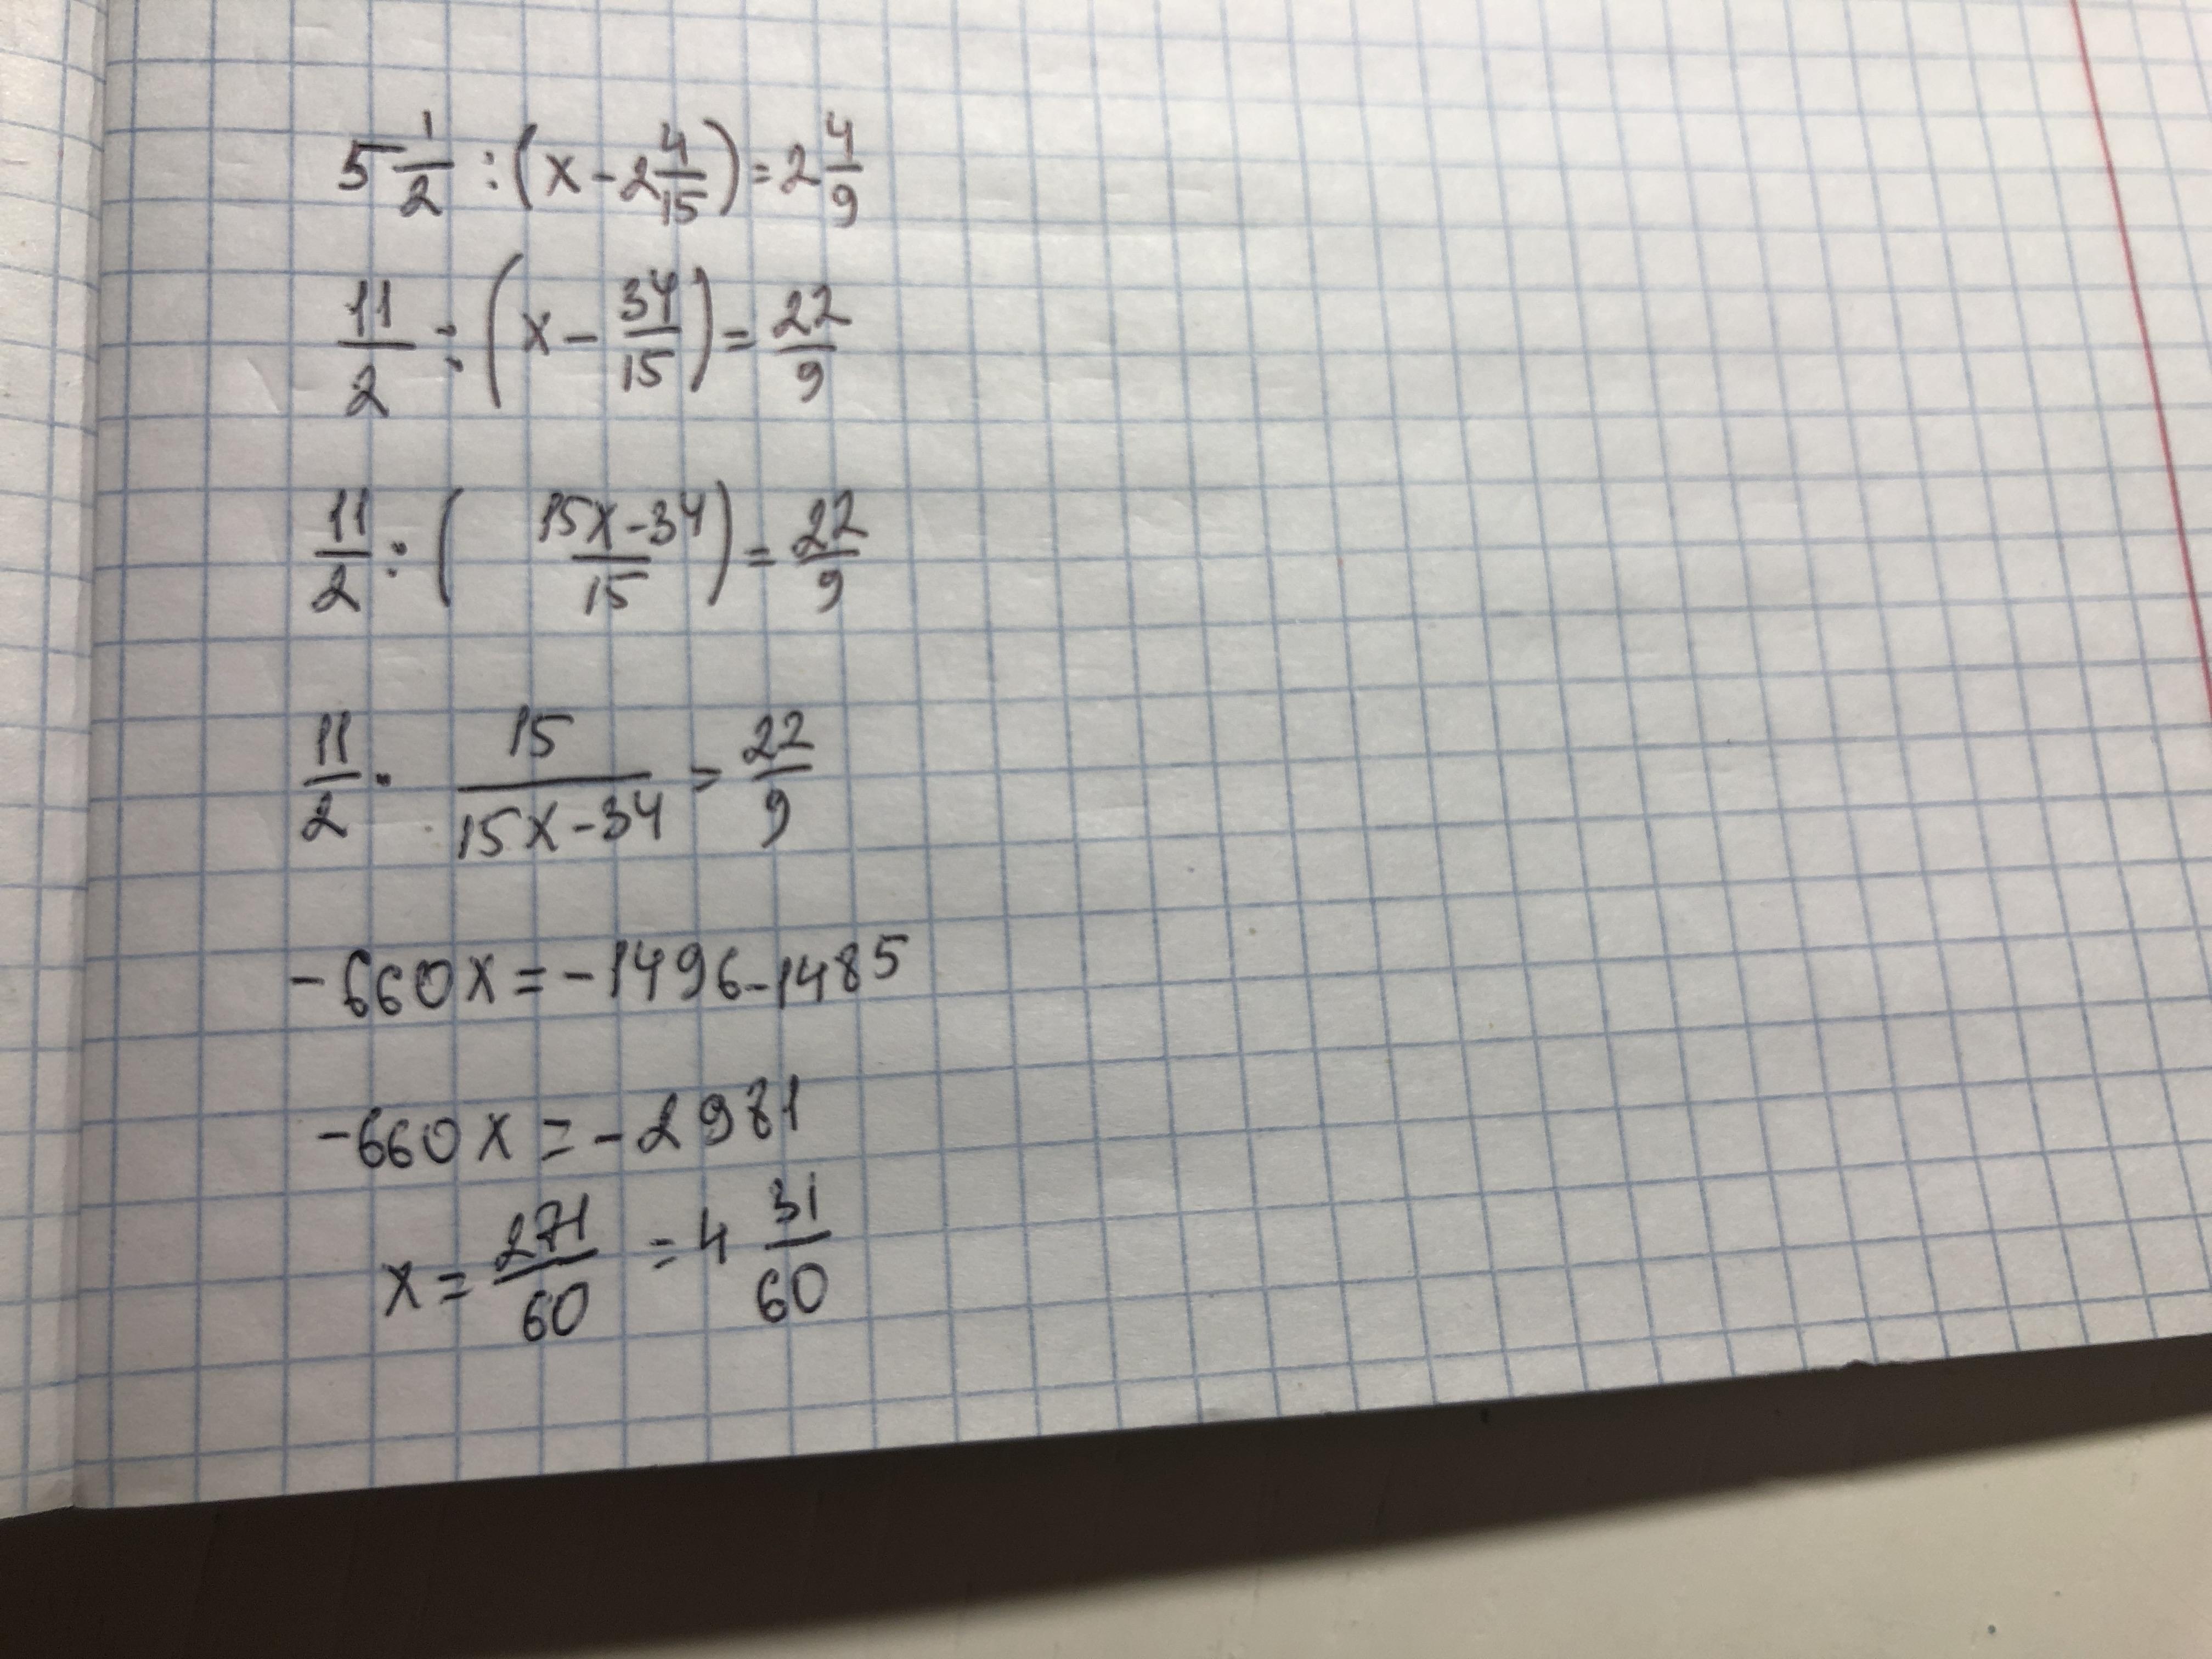 5 1/2 : (x - 2 4/15) = 2 4/9
11/2 : (x - 34/15) = 22/9
11/2 : (15x - 34/15) = 22/9
11/2 · 15/15x - 34 = 22/9
-660x = -1496 - 1485
-660x = -2981
x = 271/60 = 4 31/60